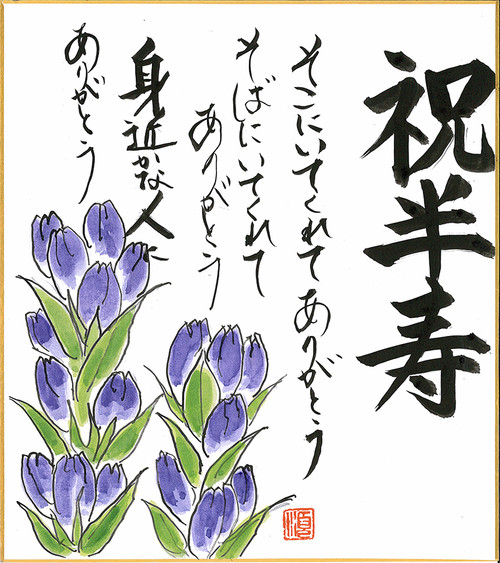 祝半寿
そこにいてくれて ありがとう
そばにいてくれて
ありがとう
身近な人に
ありがとう